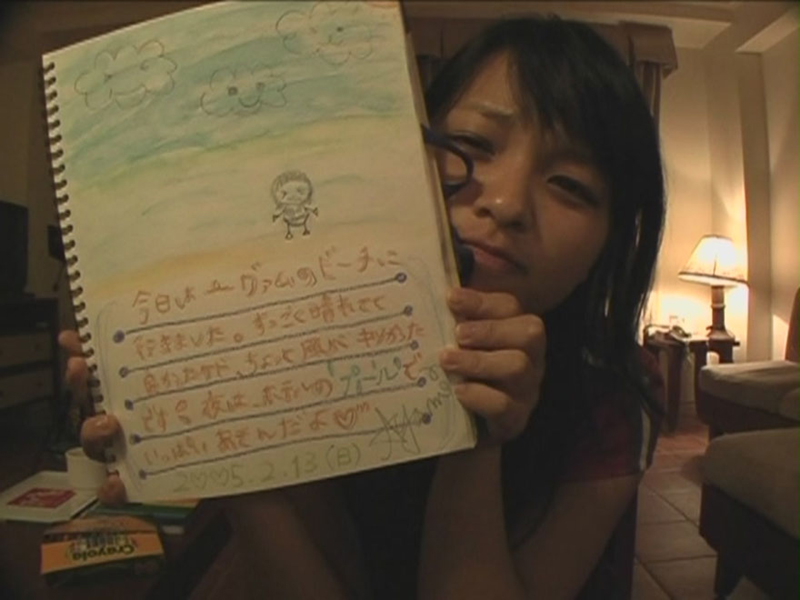 今日は グァムのビーチに
行きました。すっごく晴れてて
良かったケド、ちょっと風が キツかった
です 夜は、ホテルの プールで
いっぱい あそんだよ♡
2♡♡5.2.13(日)
Crayola